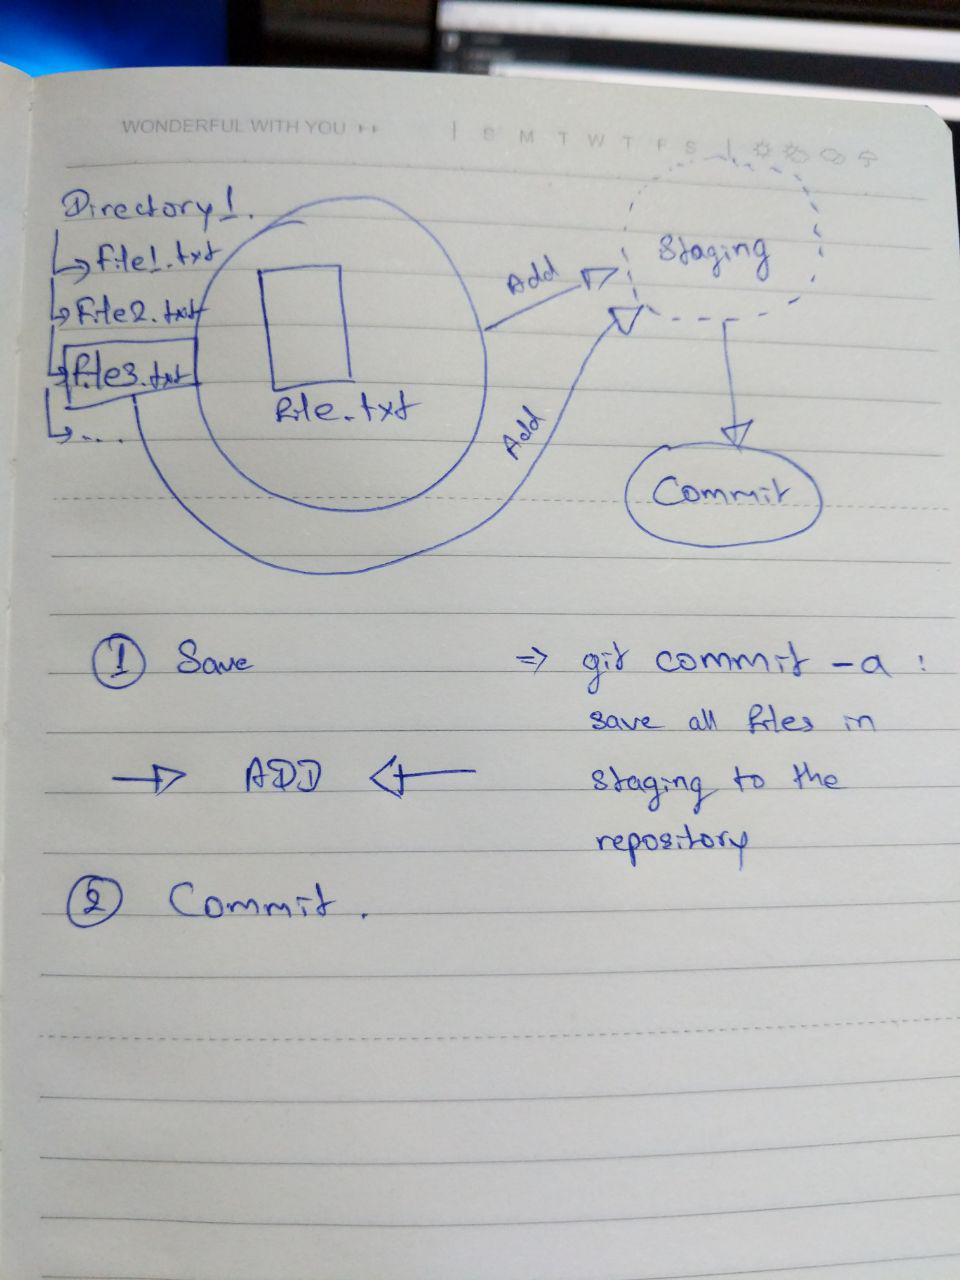 WONDERFUL WITH YOU
S M T W T F S
Directory1.
file1.txt
file2.txt
file3.txt
....
file.txt
Add
Add
Staging
Commit
① Save
ADD
② Commit.
⇒ git commit -a :
save all files in
staging to the
repository